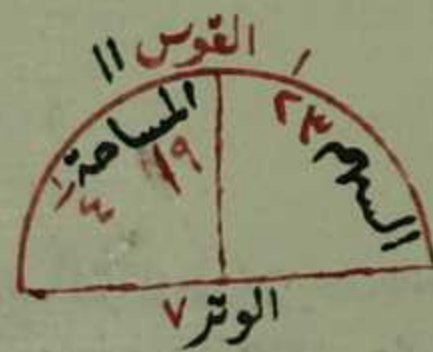 القوس ١١
المساحة ١٩ ١/٤
السهم ٣ ١/٢
الوتر ٧